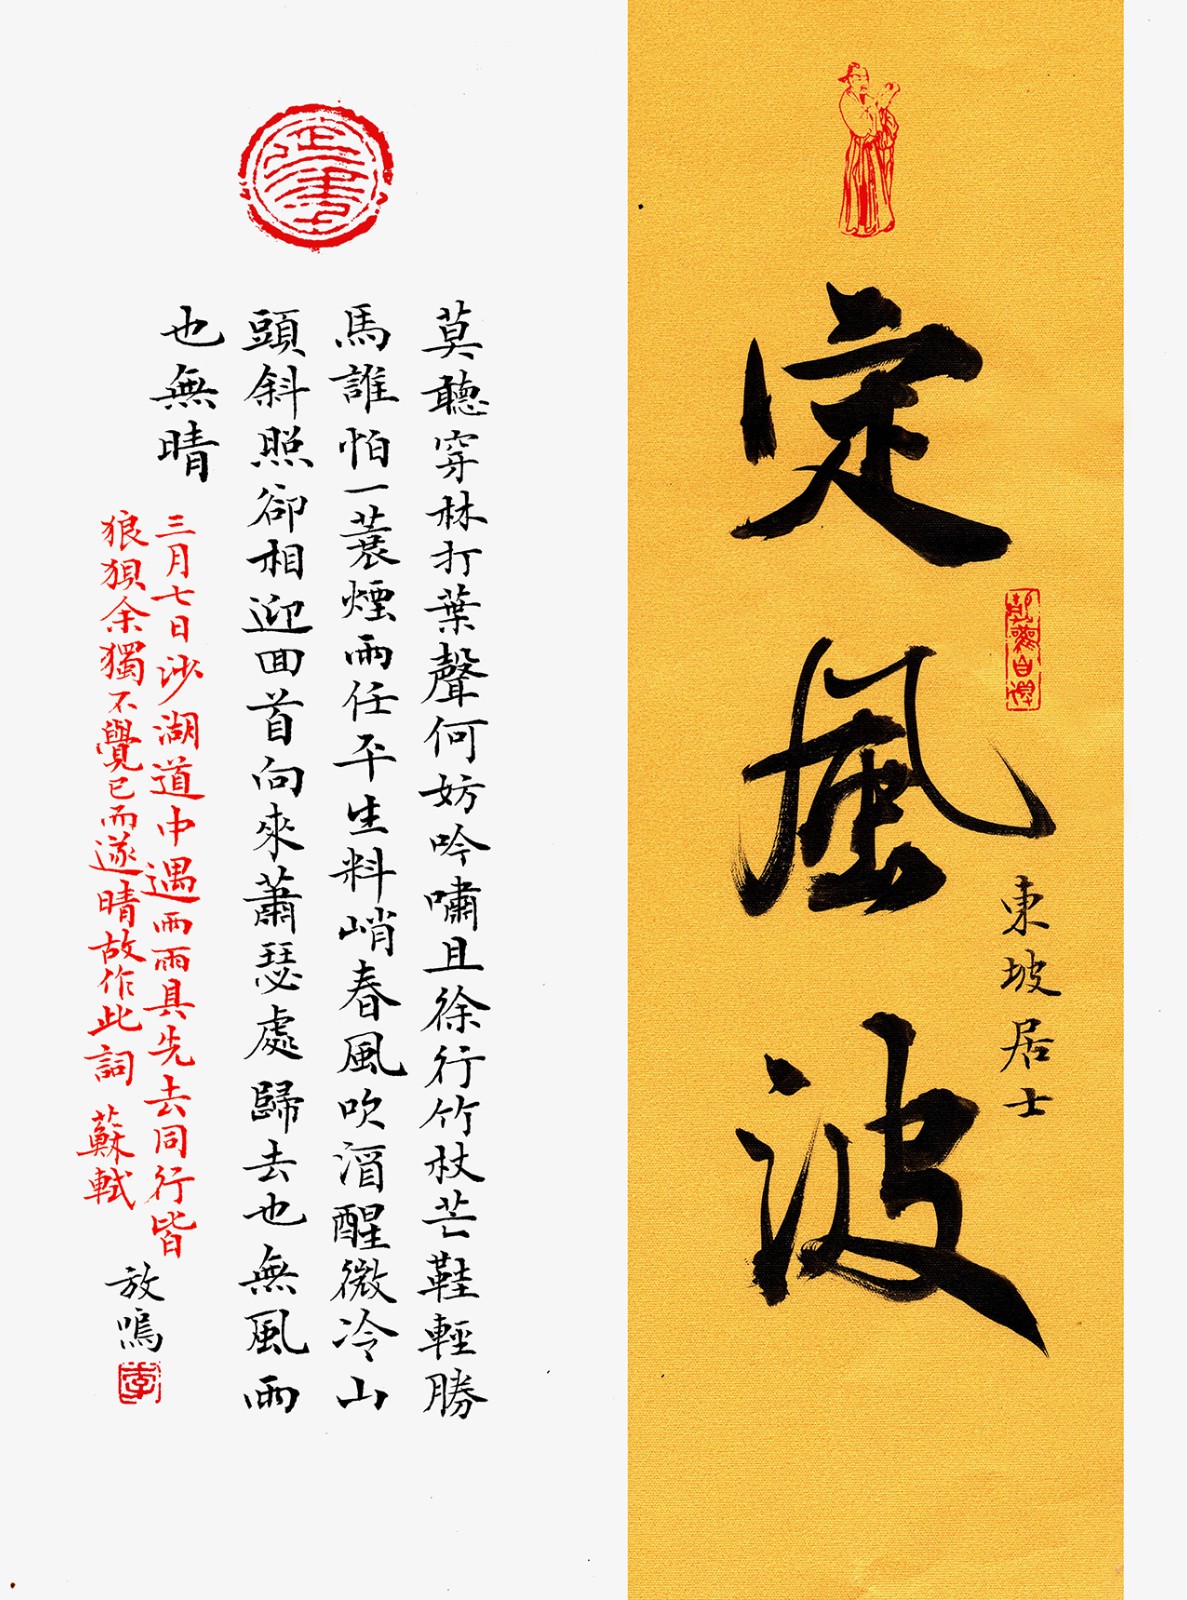 定風波
東坡居士
莫聽穿林打葉聲何妨吟嘯且徐行竹杖芒鞋輕勝
馬誰怕一蓑煙雨任平生料峭春風吹酒醒微冷山
頭斜照卻相迎回首向來蕭瑟處歸去也無風雨
也無晴
三月七日沙湖道中遇雨雨具先去同行皆
狼狽余獨不覺已而遂晴故作此詞 蘇軾
放
李